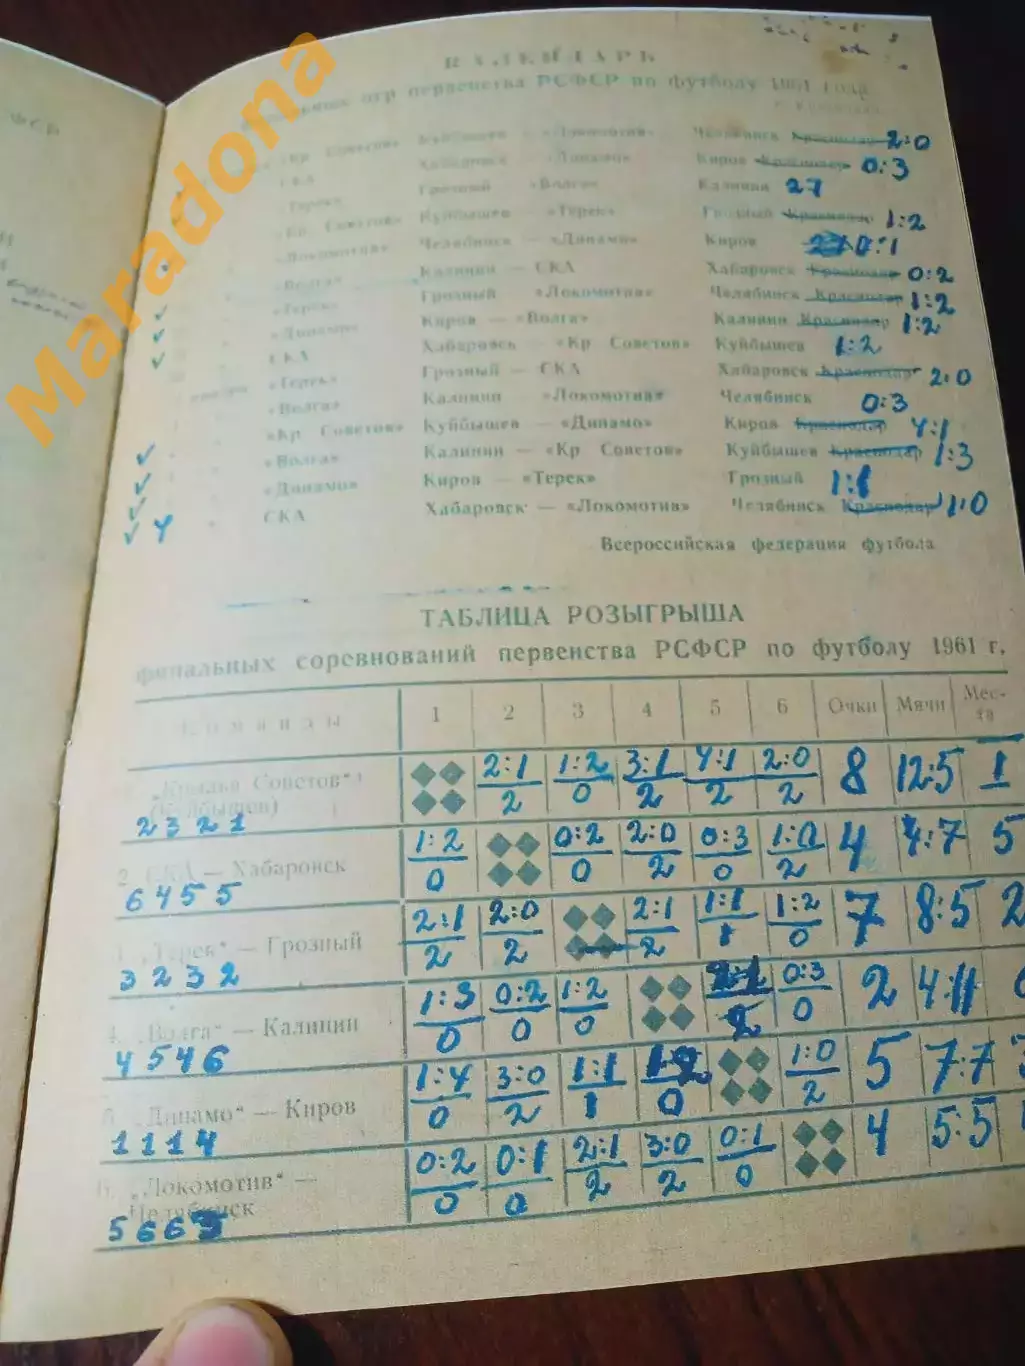 КАЛЕНДАРЬ
игр первенства РСФСР по футболу 1961 года
«Кр Советов» Куйбышев — «Локомотив» Челябинск Краснодар 2:0
СКА Хабаровск — «Динамо» Киров Краснодар 0:3
«Терек» Грозный «Волга» Калинин 27
«Кр. Советов» Куйбышев — «Терек» Грозный Краснодар 1:2
«Локомотив» Челябинск — «Динамо» Киров 0:1
«Волга» Калинин — СКА Хабаровск Краснодар 0:2
«Терек» Грозный «Локомотив» Челябинск Краснодар 1:2
«Динамо» Киров — «Волга» Калинин Краснодар 1:2
СКА Хабаровск — «Кр Советов» Куйбышев 1:2
«Терек» Грозный — СКА Хабаровск Краснодар 2:0
«Волга» Калинин «Локомотив» Челябинск 0:3
«Кр Советов» Куйбышев — «Динамо» Киров Краснодар 4:1
«Волга» Калинин — «Кр Советов» Куйбышев Краснодар 1:3
«Динамо» Киров — «Терек» Грозный 1:1
4 СКА Хабаровск — «Локомотив» Челябинск Краснодар 1:0
Всероссийская федерация футбола
ТАБЛИЦА РОЗЫГРЫША
финальных соревнований первенства РСФСР по футболу 1961 г.
Команды 1 2 3 4 5 6 Очки Мячи Мес-
та
„Крылья Советов" 2:1 1:2 3:1 4:1 2:0 8 12:5 1
(Куйбышев) 2 0 2 2 2
2 3 2 1
2. СКА — Хабаровск 1:2 0:2 2:0 0:3 1:0 4 4:7 5
0 0 2 0 2
6 4 5 5
3. „Терек" — Грозный 2:1 2:0 2:1 1:1 1:2 7 8:5 2
2 2 2 1 0
3 2 3 2
4. „Волга" — Калинин 1:3 0:2 1:2 0:3 2 4:11
0 0 0 2 0
4 5 4 6
5. „Динамо" — Киров 1:4 3:0 1:1 1:0 5 7:7 3
0 2 1 0 2
1 1 1 4
6. „Локомотив" — 0:2 0:1 2:1 3:0 0:1 4 5:5
Челябинск 0 0 2 2 0
5 6 6 3
Maradona